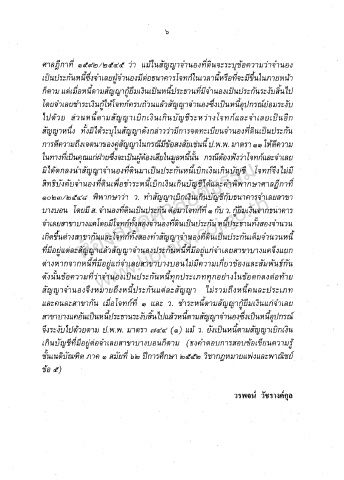 ๖
ศาลฎีกาที่ ๑๕๙๒/๒๕๔๕ ว่า แม้ในสัญญาจำนองที่ดินจะระบุข้อความว่าจำนอง
เป็นประกันหนี้ซึ่งจำเลยผู้จำนองมีต่อธนาคารโจทก์ในเวลานี้หรือที่จะมีขึ้นในภายหน้า
ก็ตาม แต่เมื่อหนี้ตามสัญญากู้ยืมเงินเป็นหนี้ประธานที่มีจำนองเป็นประกันระงับสิ้นไป
โดยจำเลยชำระเงินกู้ให้โจทก์ครบถ้วนแล้วสัญญาจำนองซึ่งเป็นหนี้อุปกรณ์ย่อมระงับ
ไปด้วย ส่วนหนี้ตามสัญญาเบิกเงินเกินบัญชีระหว่างโจทก์และจำเลยเป็นอีก
สัญญาหนึ่ง ทั้งมิได้ระบุในสัญญาดังกล่าวว่ามีการจดทะเบียนจำนองที่ดินเป็นประกัน
การตีความถึงเจตนาของคู่สัญญาในกรณีมีข้อสงสัยเช่นนี้ ป.พ.พ. มาตรา ๑๑ ให้ตีความ
ในทางที่เป็นคุณแก่ฝ่ายซึ่งจะเป็นผู้ต้องเสียในมูลหนี้นั้น กรณีต้องฟังว่าโจทก์และจำเลย
มิได้ตกลงนำสัญญาจำนองที่ดินมาเป็นประกันหนี้เบิกเงินเกินบัญชี โจทก์จึงไม่มี
สิทธิบังคับจำนองที่ดินเพื่อชำระหนี้เบิกเงินเกินบัญชีได้และคำพิพากษาศาลฎีกาที่
พิพากษาว่า ว. ทำสัญญาเบิกเงินเกินบัญชีกับธนาคารจำเลยสาขา
บางบอน โดยมี ส. จำนองที่ดินเป็นประกัน ต่อมาโจทก์ที่ ๑ กับ ว. กู้ยืมเงินจากธนาคาร
จำเลยสาขาบางแคโดยมีโจทก์ทั้งสองจำนองที่ดินเป็นประกันหนี้ประธานทั้งสองจำนวน
เกิดขึ้นต่างสาขากันและโจทก์ทั้งสองทำสัญญาจำนองที่ดินเป็นประกันเต็มจำนวนหนี้
ที่มีอยู่แต่ละสัญญาแล้วสัญญาจำนองประกันหนี้ที่มีอยู่แก่จำเลยสาขาบางแคจึงแยก
ต่างหากจากหนี้ที่มีอยู่แก่จำเลยสาขาบางบอนไม่มีความเกี่ยวข้องและสัมพันธ์กัน
ดังนั้นข้อความที่ว่าจำนองเป็นประกันหนี้ทุกประเภททุกอย่างในข้อตกลงต่อท้าย
สัญญาจำนองจึงหมายถึงหนี้ประกันแต่ละสัญญา ไม่รวมถึงหนี้คนละประเภท
และคนละสาขากัน เมื่อโจทก์ที่ ๑ และ ว. ชำระหนี้ตามสัญญากู้ยืมเงินแก่จำเลย
สาขาบางแคอันเป็นหนี้ประธานระงับสิ้นไปแล้วหนี้ตามสัญญาจำนองซึ่งเป็นหนี้อุปกรณ์
จึงระงับไปด้วยตาม ป.พ.พ. มาตรา ๗๔๔ (๑) แม้ ว. ยังเป็นหนี้ตามสัญญาเบิกเงิน
เกินบัญชีที่มีอยู่ต่อจำเลยสาขาบางบอนก็ตาม (ธงคำตอบการสอบข้อเขียนความรู้
ชั้นเนติบัณฑิต ภาค ๑ สมัยที่ ๖๒ ปีการศึกษา ๒๕๕๒ วิชากฎหมายแพ่งและพาณิชย์
ข้อ ๕)
วรพจน์ วัชรางค์กุล